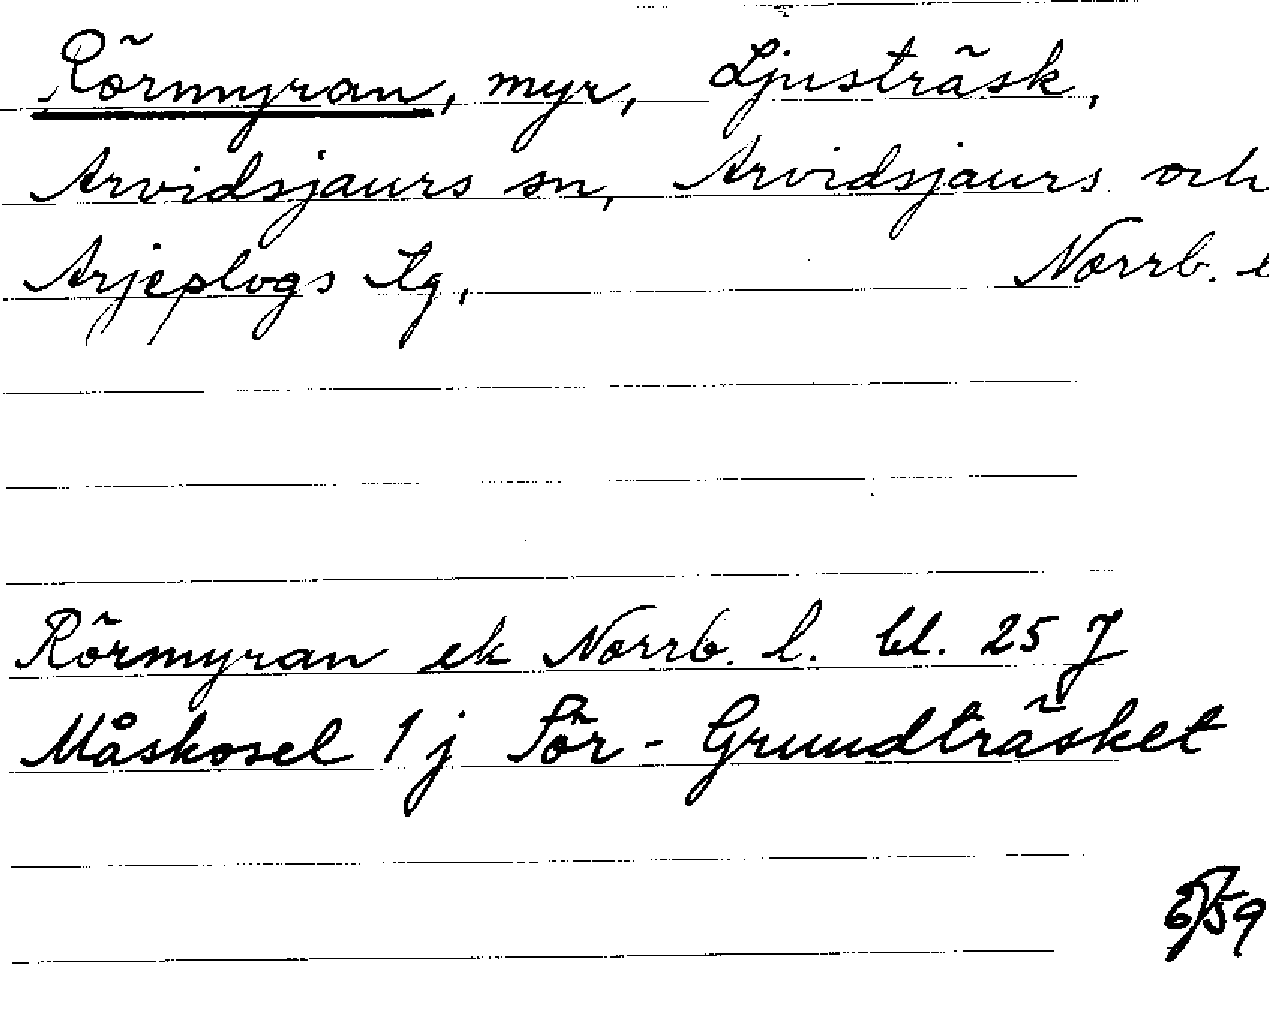 Rörmyran, myr, Ljusträsk,
Arvidsjaurs sn, Arvidsjaurs och
Arjeplogs tg, Norrb. l
Rörmyran ek Norrb. l. bl. 25 J
Måskosel 1 j Sör-Grundträsket